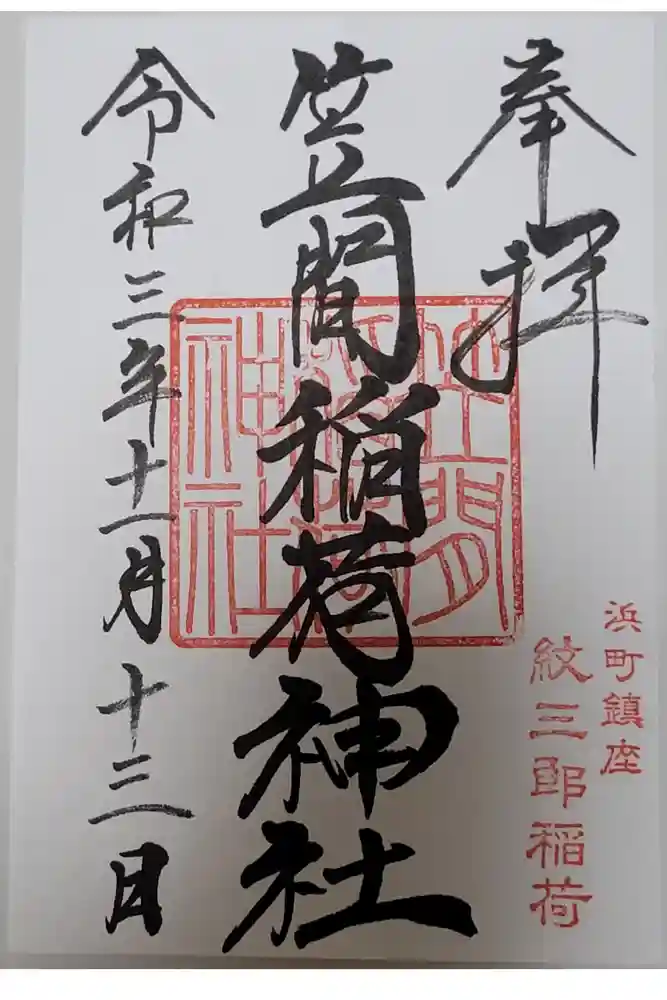 奉拝
浜町鎮座
紋三郎稲荷
笠間稲荷神社
笠間
稲荷
神社
令和三年十一月十三日